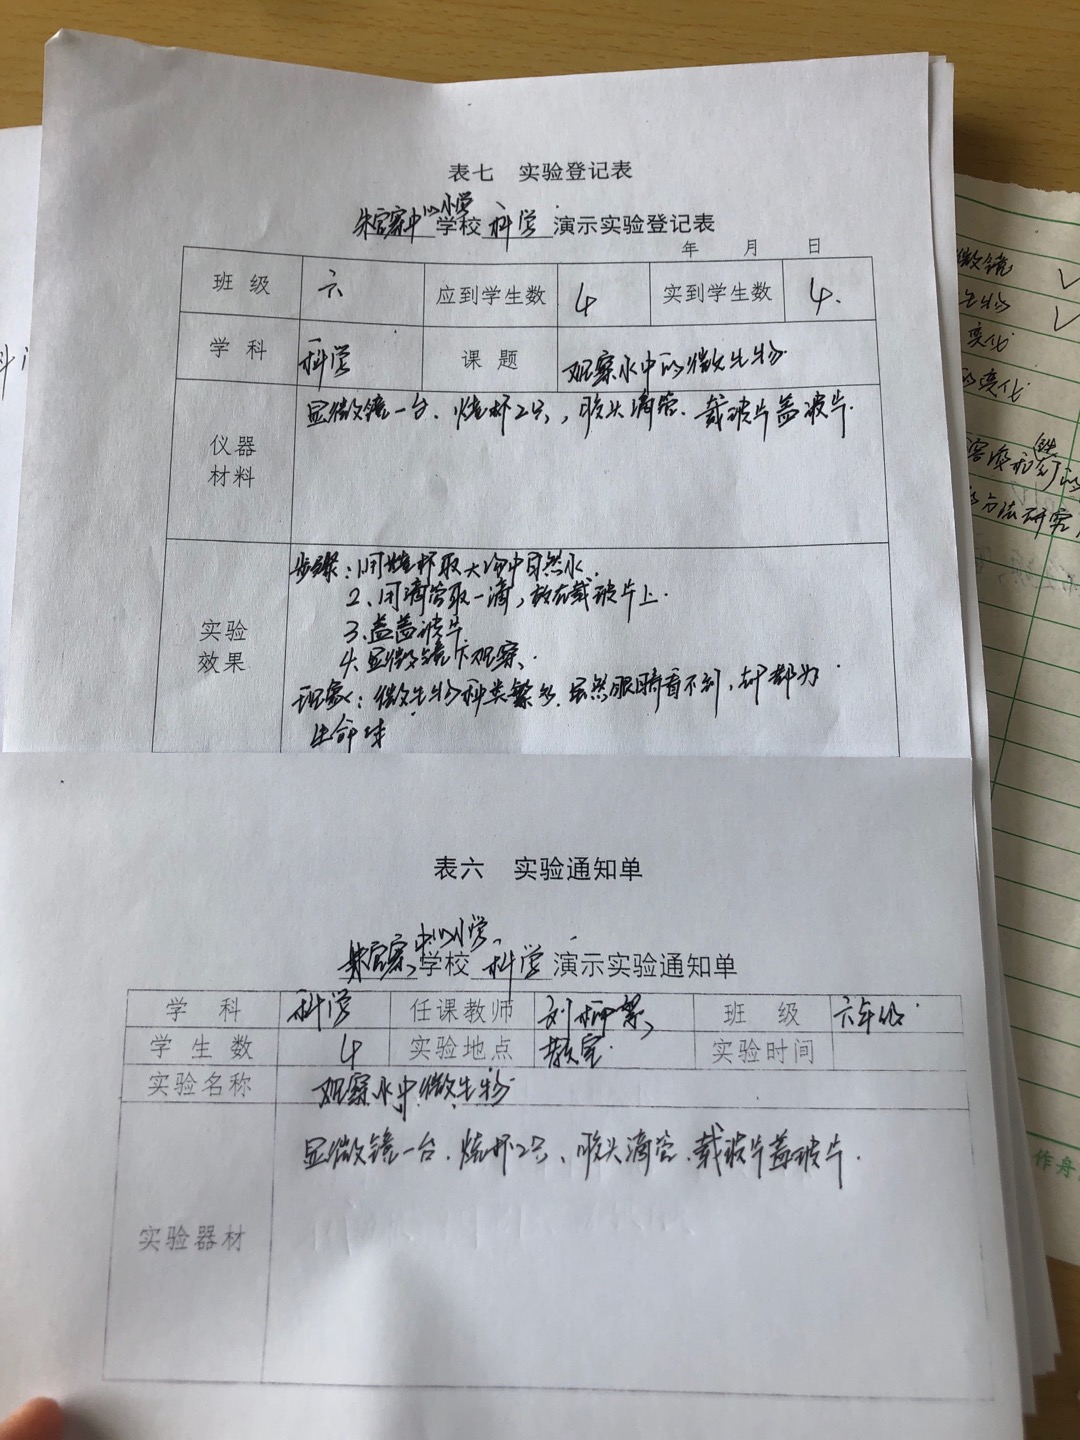 表七 实验登记表
朱官寨中心小学学校 科学 演示实验登记表
年 月 日
班级 六 应到学生数 4 实到学生数 4.
学科 科学 课题 观察水中的微生物
仪器材料 显微镜一台、烧杯2只,胶头滴管、载玻片盖玻片.
实验效果
步骤:1.用烧杯取大沟中自然水.
2、用滴管取一滴,放在载玻片上.
3.盖盖玻片
4.显微镜下观察、
现象:微生物种类繁多.虽然眼睛看不到,却都为
生命体
表六 实验通知单
朱官寨中心小学学校 科学 演示实验通知单
学科 科学 任课教师 刘柳絮 班级 六年级
学生数 4 实验地点 教室 实验时间
实验名称 观察水中微生物
实验器材 显微镜一台、烧杯2只、胶头滴管、载玻片盖玻片.
微镜
生物
变化
的变化
的方法研究
作舟